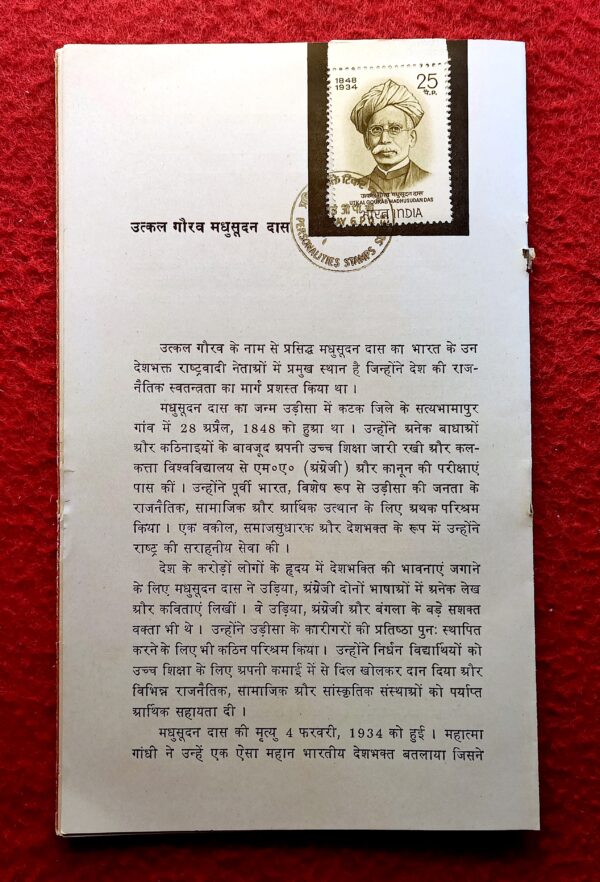 1848
1934
25
पै.P.
उत्कल गौरव मधुसूदन दास
UTKAL GOURAB MADHUSUDAN DAS
भारत INDIA
PERSONALITIES STAMPS
उत्कल गौरव मधुसूदन दास
उत्कल गौरव के नाम से प्रसिद्ध मधुसूदन दास का भारत के उन
देशभक्त राष्ट्रवादी नेताओं में प्रमुख स्थान है जिन्होंने देश की राज-
नैतिक स्वतन्त्रता का मार्ग प्रशस्त किया था ।
मधुसूदन दास का जन्म उड़ीसा में कटक जिले के सत्यभामापुर
गांव में 28 अप्रैल, 1848 को हुआ था । उन्होंने अनेक बाधाओं
और कठिनाइयों के बावजूद अपनी उच्च शिक्षा जारी रखी और कल-
कत्ता विश्वविद्यालय से एम०ए० (अंग्रेजी) और कानून की परीक्षाएं
पास कीं । उन्होंने पूर्वी भारत, विशेष रूप से उड़ीसा की जनता के
राजनैतिक, सामाजिक और आर्थिक उत्थान के लिए अथक परिश्रम
किया । एक वकील, समाजसुधारक और देशभक्त के रूप में उन्होंने
राष्ट्र की सराहनीय सेवा की ।
देश के करोड़ों लोगों के हृदय में देशभक्ति की भावनाएं जगाने
के लिए मधुसूदन दास ने उड़िया, अंग्रेजी दोनों भाषाओं में अनेक लेख
और कविताएं लिखीं । वे उड़िया, अंग्रेजी और बंगला के बड़े सशक्त
वक्ता भी थे । उन्होंने उड़ीसा के कारीगरों की प्रतिष्ठा पुन: स्थापित
करने के लिए भी कठिन परिश्रम किया । उन्होंने निर्धन विद्यार्थियों को
उच्च शिक्षा के लिए अपनी कमाई में से दिल खोलकर दान दिया और
विभिन्न राजनैतिक, सामाजिक और सांस्कृतिक संस्थाओं को पर्याप्त
आर्थिक सहायता दी ।
मधुसूदन दास की मृत्यु 4 फरवरी, 1934 को हुई । महात्मा
गांधी ने उन्हें एक ऐसा महान भारतीय देशभक्त बतलाया जिसने